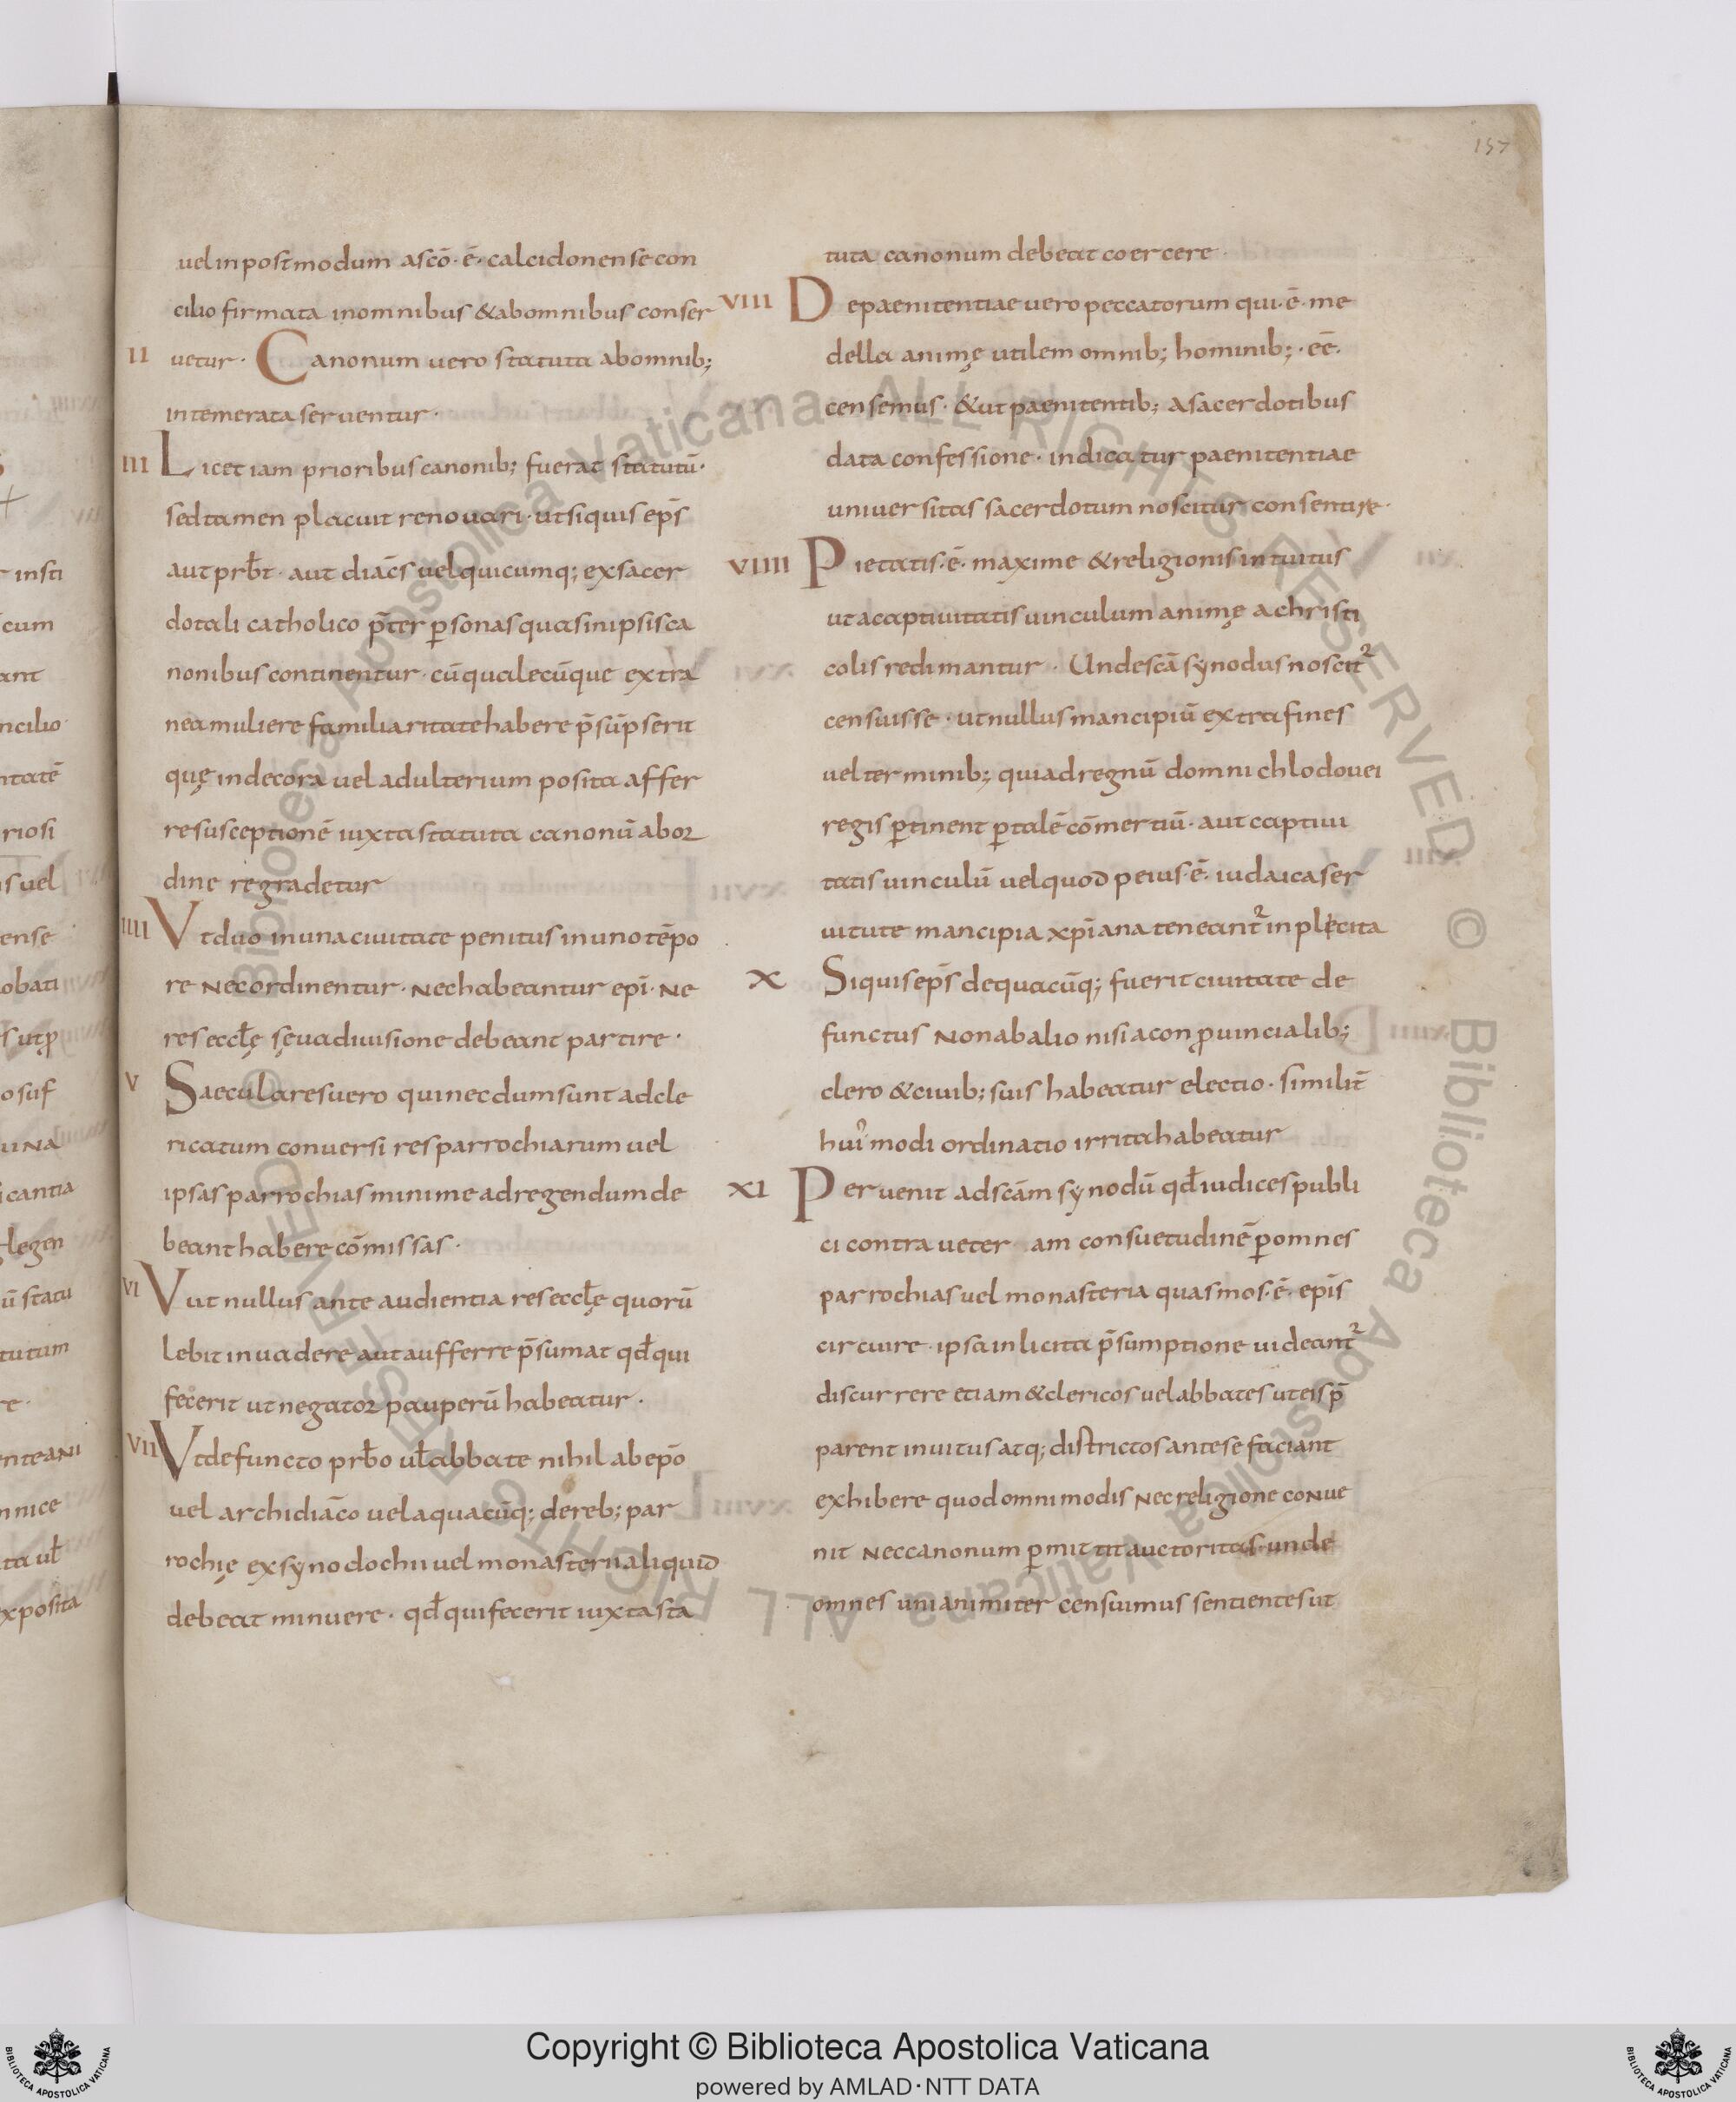 157
uel in postmodum a scō· ē· calcidonense con
cilio firmata in omnibus & ab omnibus conser
II uetur· Canonum uero statuta ab omnib;
intemerata seruentur·
III Licet iam prioribus canonib; fuerat statutū·
sed tamen placuit renouari· ut si quis ep̄s
aut prb̄t· aut diāc̄s uel quicumq; ex sacer
dotali catholico p̄ter ꝑsonas quas in ipsis ca
nonibus continentur· cū qualecūque extra
nea muliere familiaritate habere p̄sūpserit
quę indecora uel adulterium posita affer
re susceptionē iuxta statuta canonū ab or
dine regradetur
IIII Vt duo in una ciuitate penitus in uno tēpo
re nec ordinentur· nec habeantur epī· ne
res eccłę sęua diuisione debeant partire·
V Saeculares uero qui necdum sunt ad cle
ricatum conuersi res parrochiarum uel
ipsas parrochias minime ad regendum de
beant habere cōmissas·
VI Vut nullus ante audientia res eccłę quorū
lebit inuadere aut aufferre p̄sumat qđ qui
fecerit ut negator pauperū habeatur·
VII Vt defuncto prb̄o uł abbate nihil ab ep̄o
uel archidiāco uel a quacūq; de reb; par
rochię exsynodochii uel monasterii aliquid
debeat minuere· qđ qui fecerit iuxta sta
tuta canonum debeat coercere·
VIII De paenitentiae uero peccatorum qui· ē· me
della animę utilem omnib; hominib;· eē·
censemus· & ut paenitentib; a sacerdotibus
data confessione· indicatur paenitentiae
uniuersitas sacerdotum noscitur consentire·
VIIII Pietatis· ē· maxime & religionis intuitus
ut a captiuitatis uinculum animę a christi
colis redimantur· Unde scā synodus noscit᷑
censuisse· ut nullus mancipiū extra fines
uel terminib; qui ad regnū domni chlodouei
regis ꝑtinent ꝑ talē cōmertiū· aut captiui
tatis uinculū uel quod peius· ē· iudaica ser
uitute mancipia xp̄iana teneant᷑ inplecita
X Si quis ep̄s de quacūq; fuerit ciuitate de
functus non ab alio nisi a conꝓuincialib;
clero & ciuib; suis habeatur electio· similit̄
hui᾽modi ordinatio irrita habeatur
XI Peruenit ad scām synodū qđ iudices publi
ci contra ueter am consuetudinē ꝑ omnes
parrochias uel monasteria quas mos· ē· ep̄is
circuire· ipsa inlicita p̄sumptione uideant᷑
discurrere etiam & clericos uel abbates ut eis p̄
parent inuitus atq; districtos ante se faciant
exhibere quod omnimodis nec religione conue
nit nec canonum ꝑmittit auctoritas· unde
omnes unianimiter censuimus sentientes ut
Copyright © Biblioteca Apostolica Vaticana
powered by AMLAD·NTT DATA